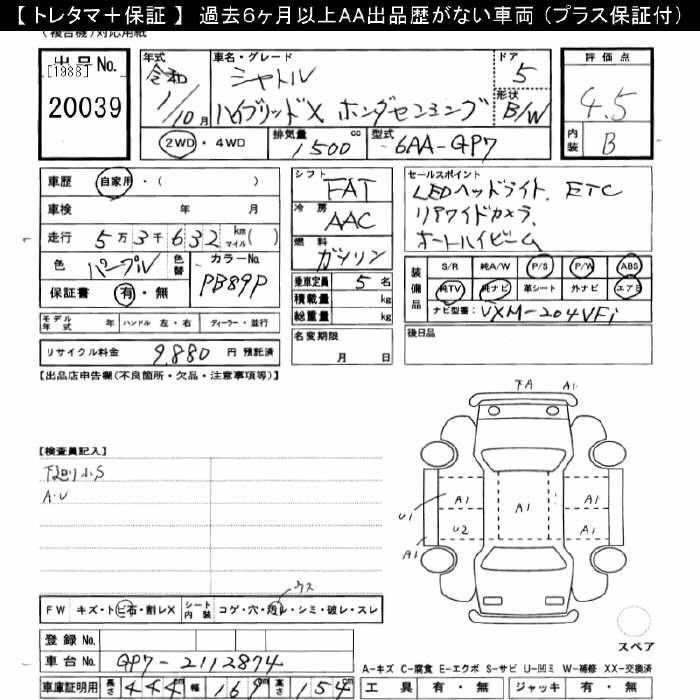 【 トレタマ＋保証 】 過去6ヶ月以上AA出品歴がない車両 (プラス保証付)
(複合機)対応用紙
出品No.
[1988]
20039
年式
令和
1/10月
車名・グレード
シャトル
ハイブリッドX ホンダセンシング
ドア
5
形状
B/W
2WD・4WD
排気量
1500 cc
型式
6AA-GP7
評価点
4.5
内装
B
車歴 自家用・( )
車検 年 月
走行 5万3千632 km マイル( )
色 パープル 色替
カラーNo. PB89P
保証書 有・無
モデル年式 年 ハンドル 左・右 ディーラー・並行
リサイクル料金 9,880 円 預託済
シフト FAT
冷房 AAC
燃料 ガソリン
乗車定員 5 名
積載量 kg
総重量 kg
名変期限
月 日
セールスポイント
LEDヘッドライト. ETC
リアワイドカメラ.
オートハイビーム
装備品
S/R 純A/W P/S P/W ABS
純TV 純ナビ 革シート 外ナビ エアB
ナビ型番: VXM-204VFi
後日品
【出品店申告欄(不良箇所・欠品・注意事項等)】
【検査員記入】
下回りふS
A・U
下A A1
A1 A1 A1
U1 U2 A1
A1
スペア
FW キズ・トビ石・割レX シート内装 コゲ・穴・切レ・シミ・破レ・スレ
ウス
登録No.
車台No. GP7-2112874
車庫証明用 長さ 444cm 幅 169cm 高さ 154cm
A-キズ C-腐食 E-エクボ S-サビ U-凹ミ W-補修 XX-交換済
工具 有・無 ジャッキ 有・無